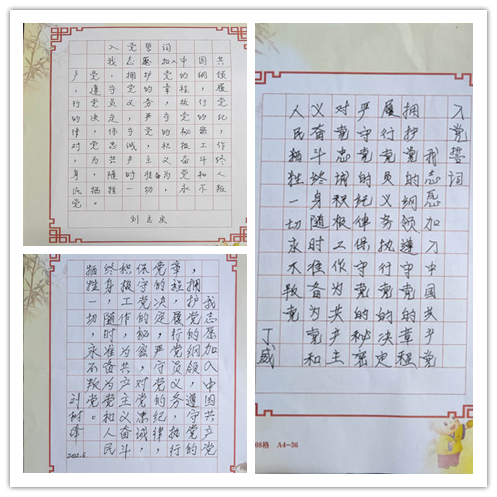 入党誓词
我志愿加入中国共
产党，拥护党的纲领
，遵守党的章程，履
行党员义务，执行党
的决定，严守党的纪
律，保守党的秘密，
对党忠诚，积极工作
，为共产主义奋斗终
身，随时准备为党和人
民牺牲一切，永不叛
党。
入党誓词
我志愿加入中国共产党
拥护党的纲领遵守党的章程
履行党员义务执行党的决定
严守党的纪律保守党的秘密
对党忠诚积极工作为共产主
义奋斗终身随时准备为党和
人民牺牲一切永不叛党
丁威
08格 A4-36
我志愿加入中国共产党
，拥护党的纲领，遵守党的
章程，履行党员义务，执行
党的决定，严守党的纪律，
保守党的秘密，对党忠诚，
积极工作，为共产主义奋斗
终身，随时准备为党和人民
牺牲一切，永不叛党。